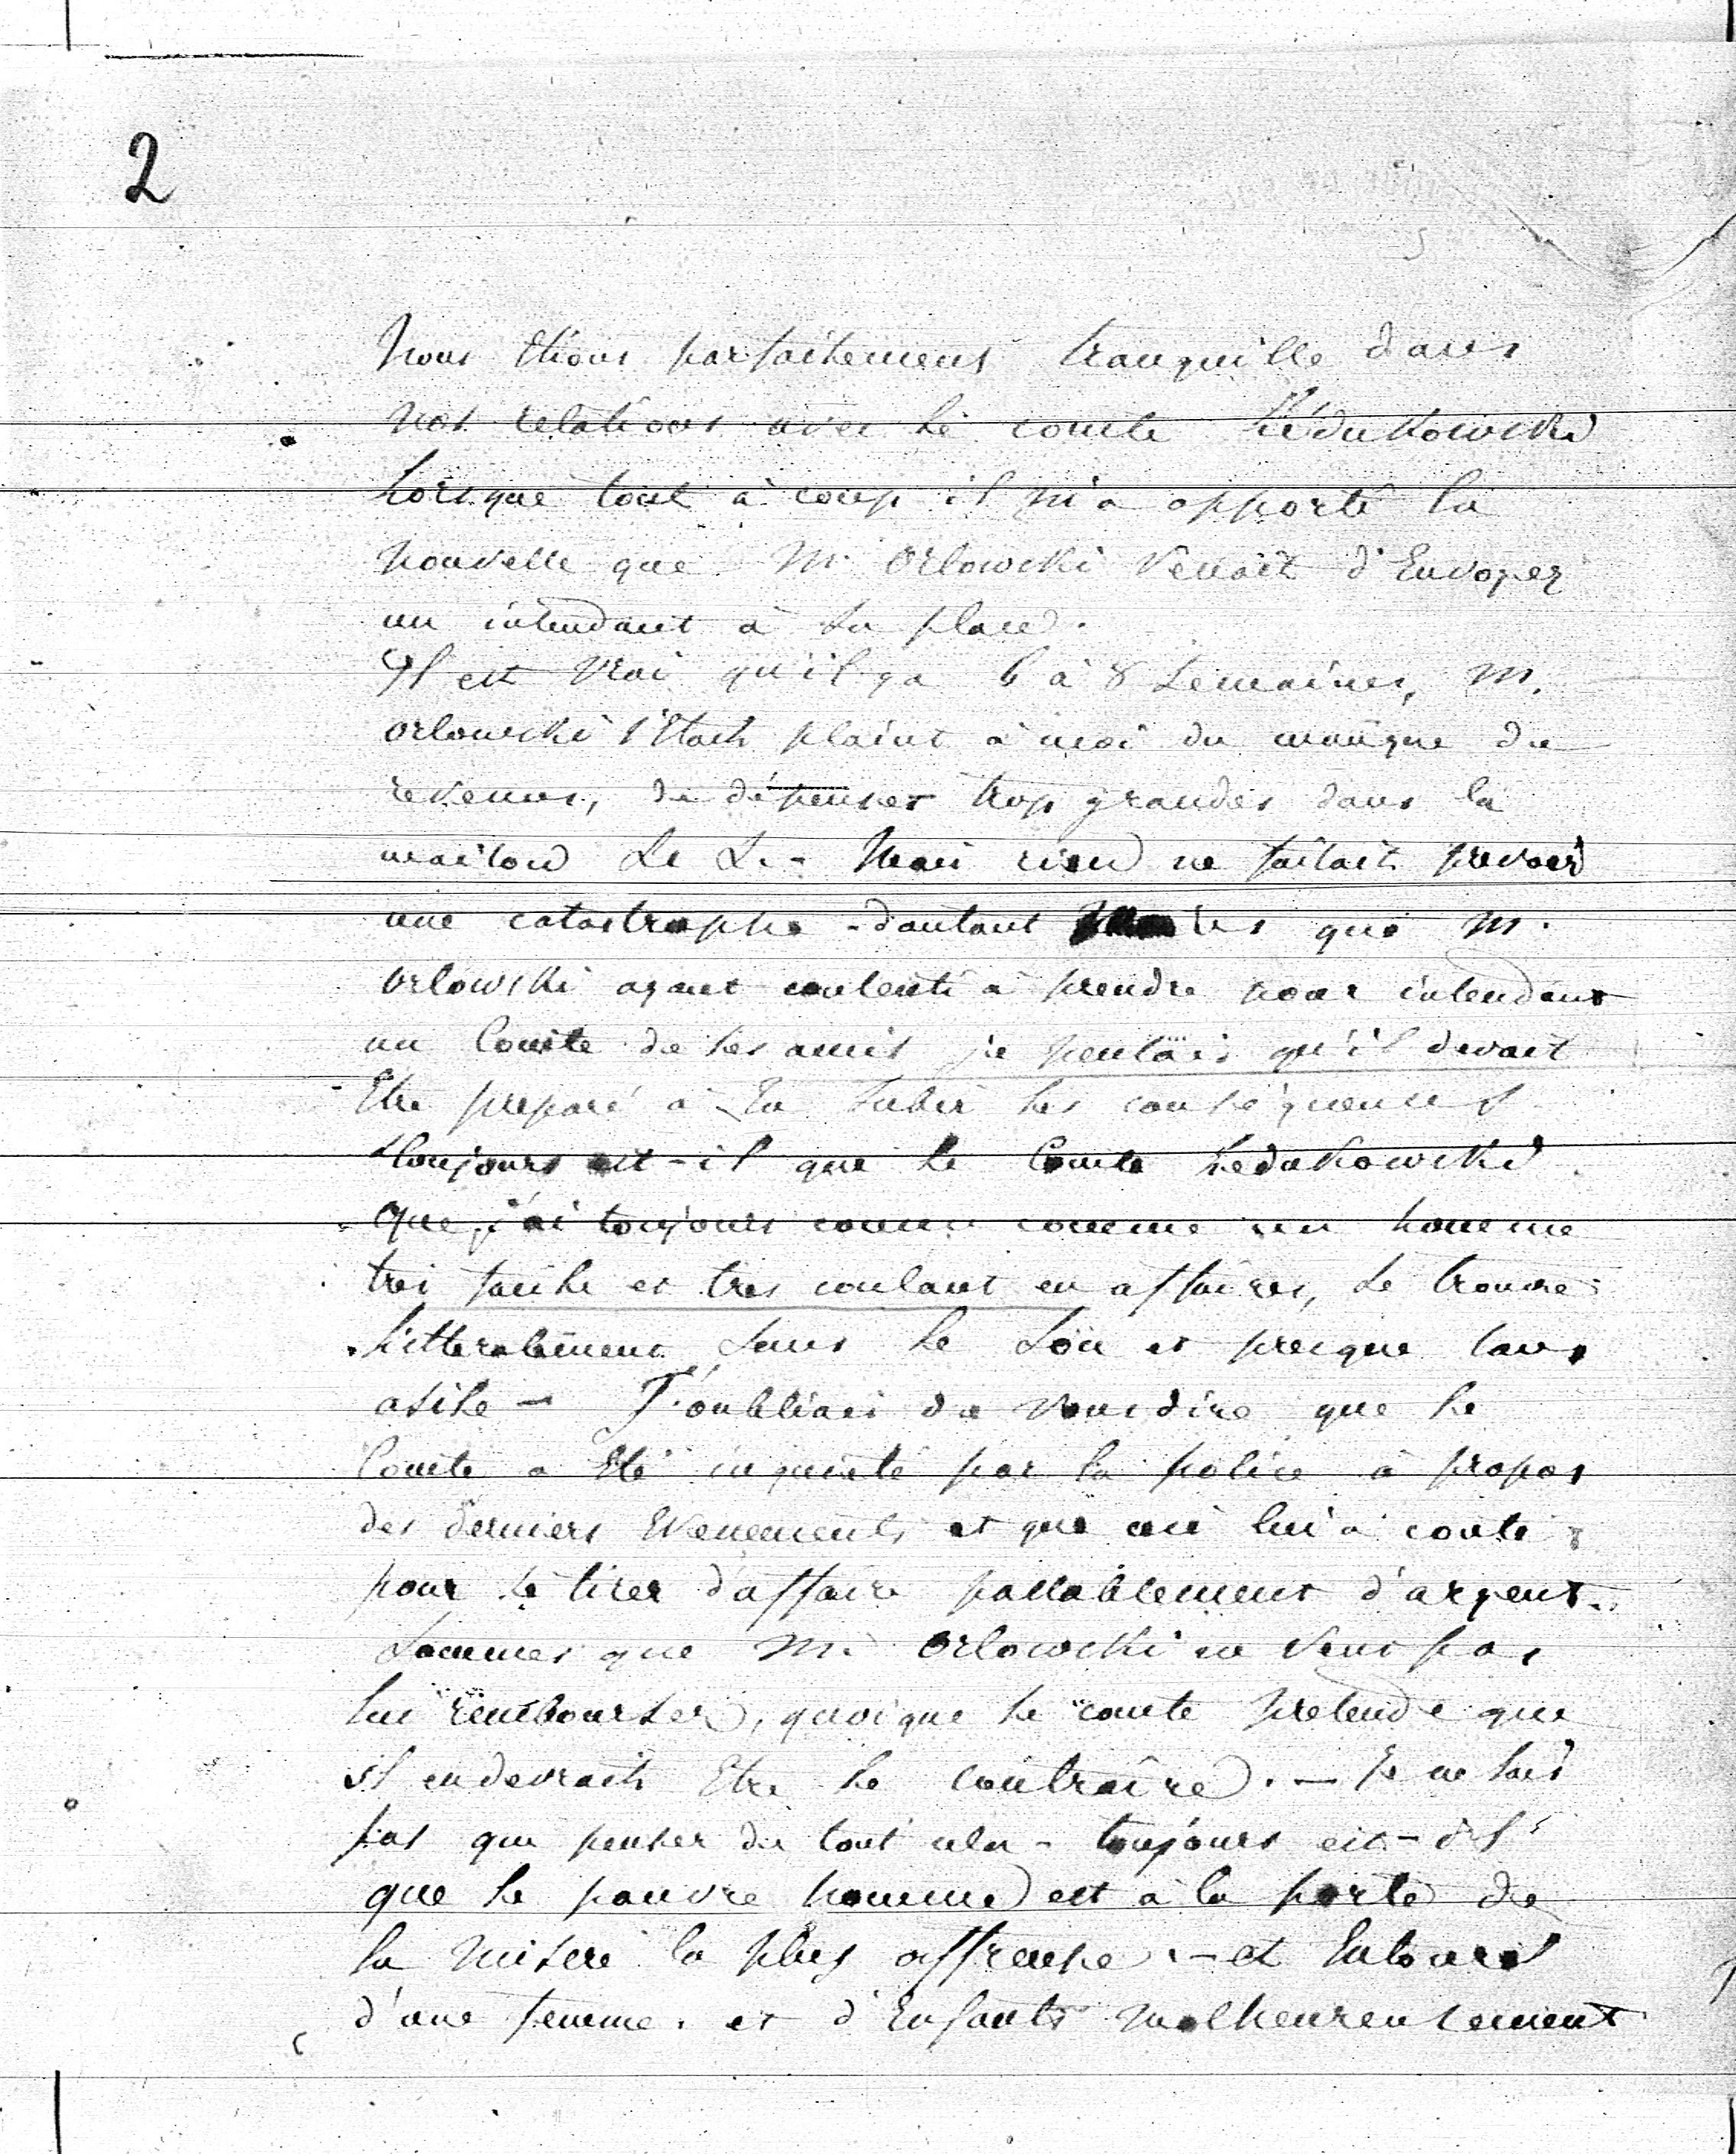 2
Nous Etions parfaitement tranquille dans
nos relations avec le comte Lédukowski
Lorsque tout à coup il m'a apporté la
nouvelle que Mr Orlowski Venait d'Envoyer
un intendant à sa place.
Il est vrai qu'il y a 6 à 8 Semaines, M.
Orlowski s'Etait plaint à moi du manque de
revenus, de dépenses trop grandes dans la
maison Le L. - Mais rien ne faisait prevoir
une catastrophe - dautant que M.
Orlowski ayant consenti à prendre pour intendant
un Comte de ses amis je pensais qu'il devait
Etre preparé à En subir les conséquences
Toujours est-il que le Comte Ledukowski
que j'ai toujours connu comme un homme
tres facile et tres coulant en affaires, se trouve
litteralement sans le Sou et presque sans
asile - J'oubliais de vous dire que le
Comte a Eté inquieté par la police à propos
des derniers Evenements et que ceci lui a couté
pour se tirer d'affaire passablement d'argent.
Sommes que M. Orlowski ne veut pas
lui rembourser, quoique le comte pretende que
il en devrait Etre le contraire. - Je ne sais
pas que penser de tout cela - toujours est-il
que le pauvre homme est à la porte de
la misere la plus affreuse. - et Entouré
d'une femme. et d'Enfants malheureusement